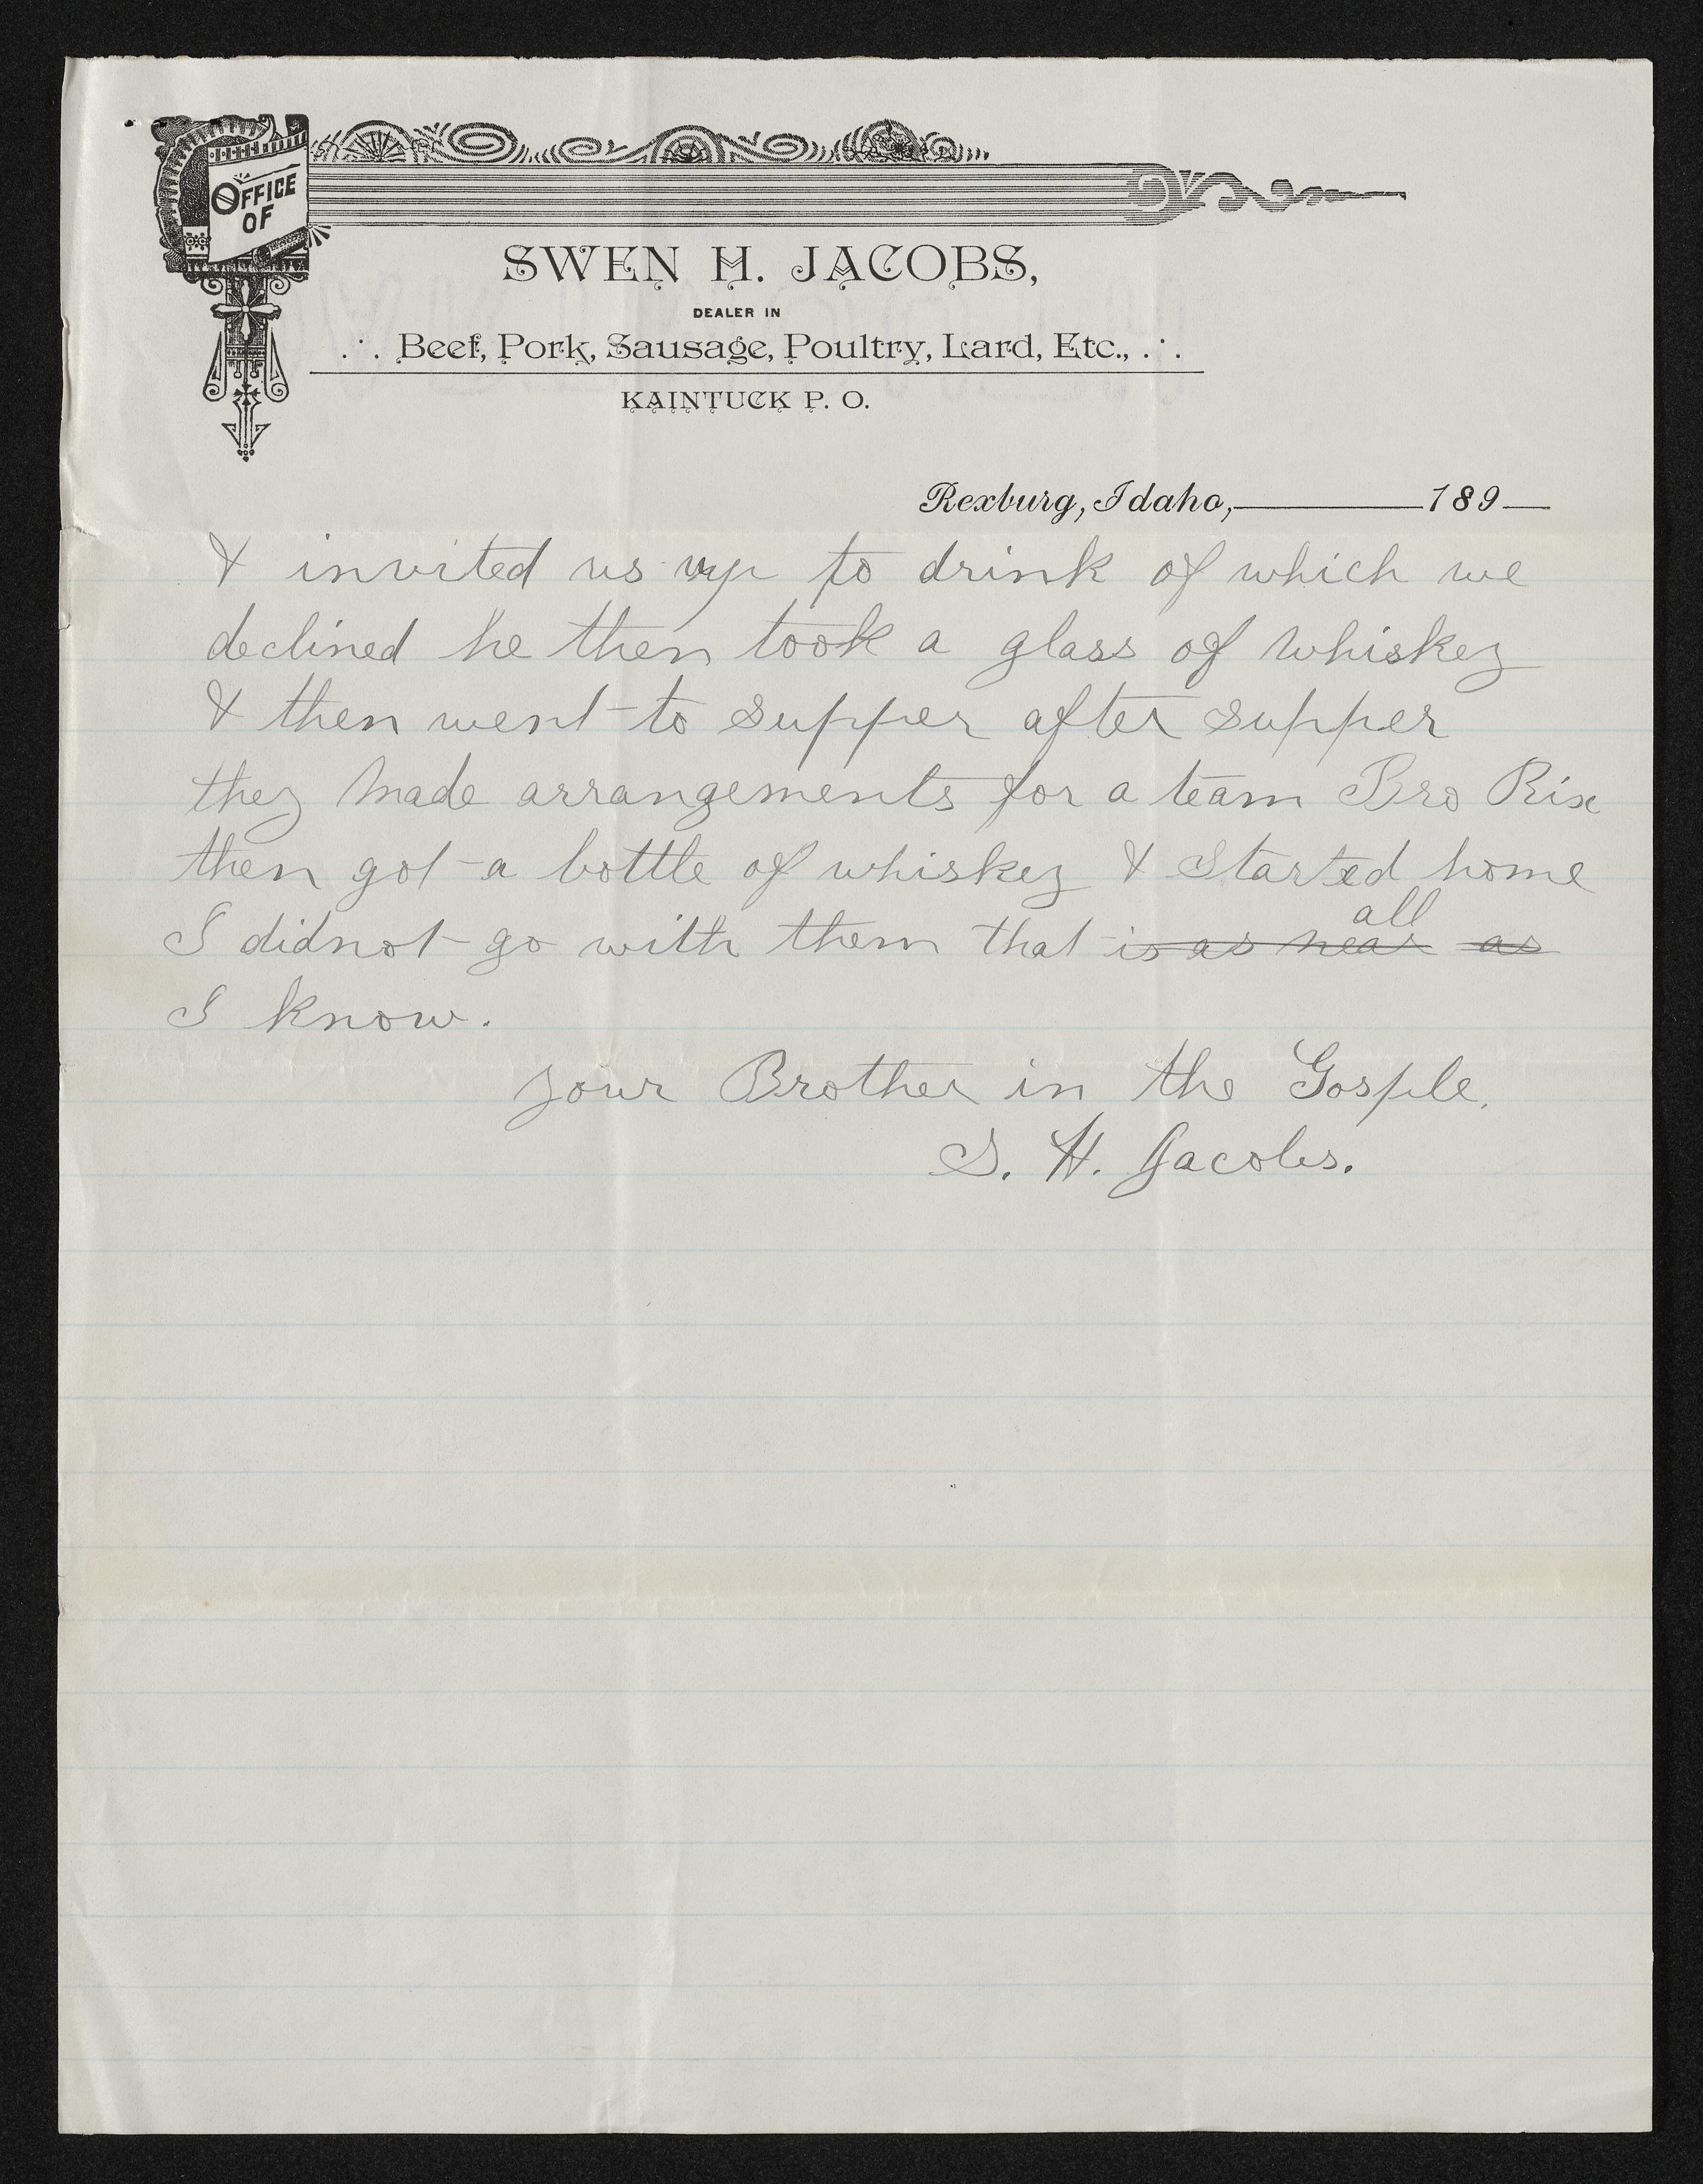 OFFICE
OF
SWEN H. JACOBS,
DEALER IN
.·. Beef, Pork, Sausage, Poultry, Lard, Etc., .·.
KAINTUCK P. O.
Rexburg, Idaho, 189
& invited us up to drink of which we
declined he then took a glass of whiskey
& then went to supper after supper
they made arrangements for a team Bro Rix
then got a bottle of whiskey & started home
all
I didnot go with them that is as near as
I know.
your Brother in the Gosple.
S. H. Jacobs.